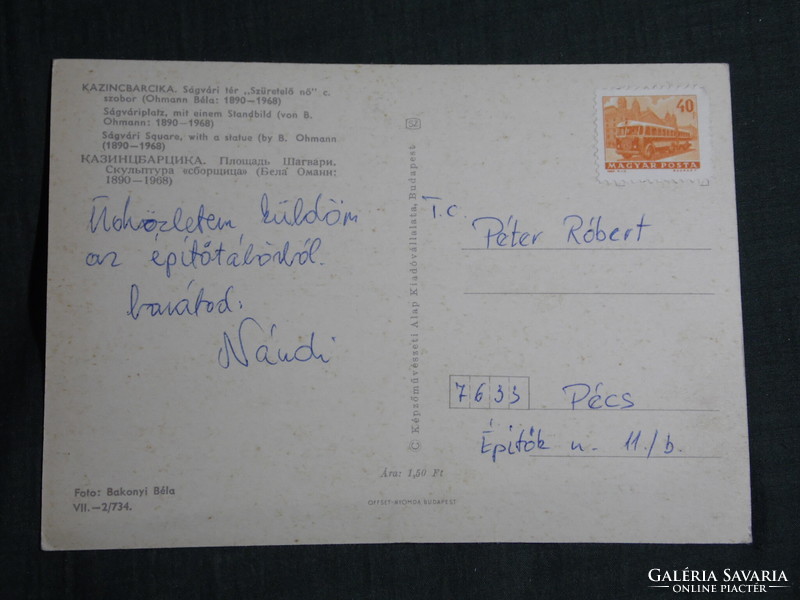 KAZINCBARCIKA. Ságvári tér „Szüretelő nő" c.
szobor (Ohmann Béla: 1890—1968)
Ságváriplatz, mit einem Standbild (von B.
Ohmann: 1890—1968)
Ságvári Square, with a statue (by B. Ohmann
(1890—1968)
КАЗИНЦБАРЦИКА. Площадь Шагвари.
Скульптура «сборщица» (Бела Оманн:
1890—1968)
Üdvözletem küldöm
az építőtáborból.
barátod:
Nándi
Foto: Bakonyi Béla
VII.—2/734.
© Képzőművészeti Alap Kiadóvállalata, Budapest
Ára: 1,50 Ft
OFFSET-NYOMDA BUDAPEST
40
MAGYAR POSTA
T.c.
Péter Róbert
7633 Pécs
Építők u. 11./b.
GALÉRIA SAVARIA
ONLINE PIACTÉR